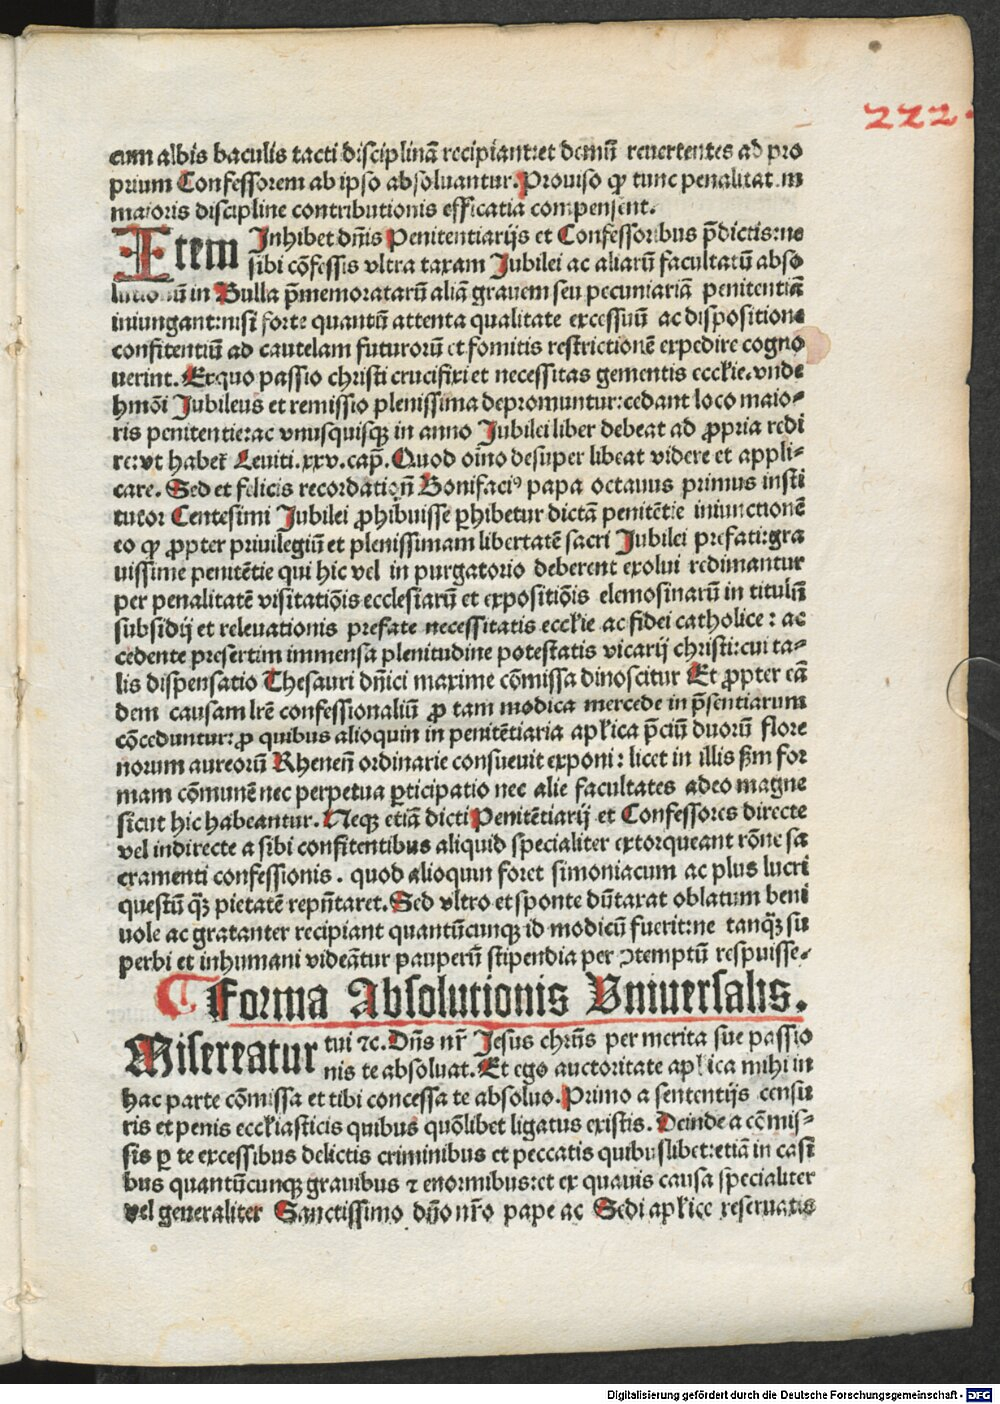 222.
cum albis baculis tacti disciplinā recipiant:et demū reuertentes ad pro
prium Confessorem ab ipso absoluantur. Prouiso ꝙ tunc penalitatem
maioris discipline contributionis efficatia compensent.
Item Inhibet dn̄is Penitentiarijs et Confessoribus p̄dictis:ne
sibi cōfessis vltra taxam Jubilei ac aliarū facultatū abso
lutionū in Bulla p̄memoratarū aliā grauem seu pecuniariā penitentiā
iniungant:nisi forte quantū attenta qualitate excessuū ac dispositione
confitentiū ad cautelam futurorū et fomitis restrictionē expedire cogno
uerint. Exquo passio christi crucifixi et necessitas gementis eccl̄ie.vnde
hmōi Jubileus et remissio plenissima depromuntur:cedant loco maio-
ris penitentie:ac vnusquisqꝫ in anno Jubilei liber debeat ad ꝓpria redi
re:vt habet̄ Leuiti.xxv.cap̄. Quod oīno desuper libeat videre et appli-
care. Sed et felicis recordation̄ Bonifaciꝰ papa octauus primus insti
tutor Centesimi Jubilei ꝓhibuisse ꝑhibetur dictā penitētie iniunctionē
eo ꝙ ꝓpter priuilegiū et plenissimam libertatē sacri Jubilei prefati:gra
uissime penitētie qui hic vel in purgatorio deberent exolui redimantur
per penalitatē visitatiōis ecclesiarū et expositiōis elemosinarū in titulū
subsidij et releuationis prefate necessitatis eccl̄ie ac fidei catholice: ac
cedente presertim immensa plenitudine potestatis vicarij christi:cui ta-
lis dispensatio Thesauri dn̄ici maxime cōmissa dinoscitur Et ꝓpter eā
dem causam lr̄e confessionaliū ꝓ tam modica mercede in p̄sentiarum
cōceduntur:ꝓ quibus alioquin in penitētiaria apl̄ica p̄ciū duorū flore
norum aureorū Rhenen̄ ordinarie consueuit exponi: licet in illis ẜm for
mam cōmunē nec perpetua ꝑticipatio nec alie facultates adeo magne
sicut hic habeantur. Neqꝫ etiā dicti Penitētiarij et Confessores directe
vel indirecte a sibi confitentibus aliquid specialiter extorqueant rōne sa
cramenti confessionis. quod alioquin foret simoniacum ac plus lucri
questū qꝫ̄ pietatē repn̄taret. Sed vltro et sponte dūtaxat oblatum beni
uole ac gratanter recipiant quantūcunqꝫ id modicū fuerit:ne tanqꝫ̄ su
perbi et inhumani videātur pauperū stipendia per ↄtemptū respuisse.
Forma Absolutionis Vniuersalis.
Misereatur tui ⁊c. Dn̄s nr̄ Jesus chrn̄s per merita sue passio
nis te absoluat. Et ego auctoritate apl̄ica mihi in
hac parte cōmissa et tibi concessa te absoluo. Primo a sententijs censu
ris et penis eccl̄iasticis quibus quōlibet ligatus existis. Deinde a cōmis-
sis ꝑ te excessibus delictis criminibus et peccatis quibuslibet:etiā in casi
bus quantūcunqꝫ grauibus ⁊ enormibus:et ex quauis causa specialiter
vel generaliter Sanctissimo dn̄o nr̄o pape ac Sedi apl̄ice reseruatis
Digitalisierung gefördert durch die Deutsche Forschungsgemeinschaft - DFG